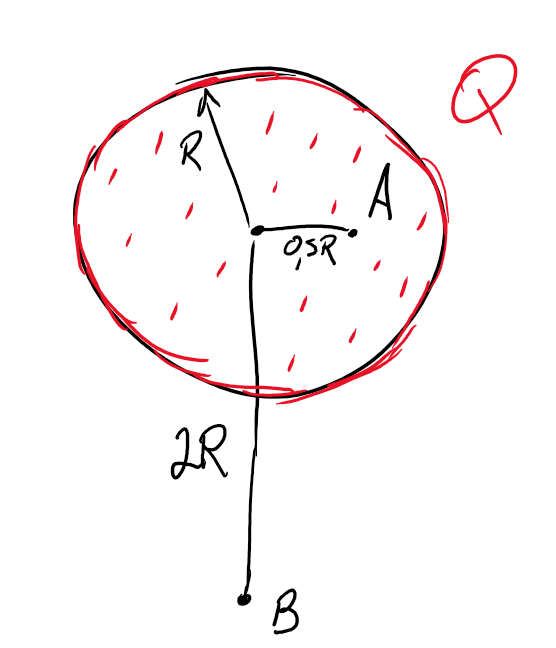 Q
R
A
0,5R
2R
B